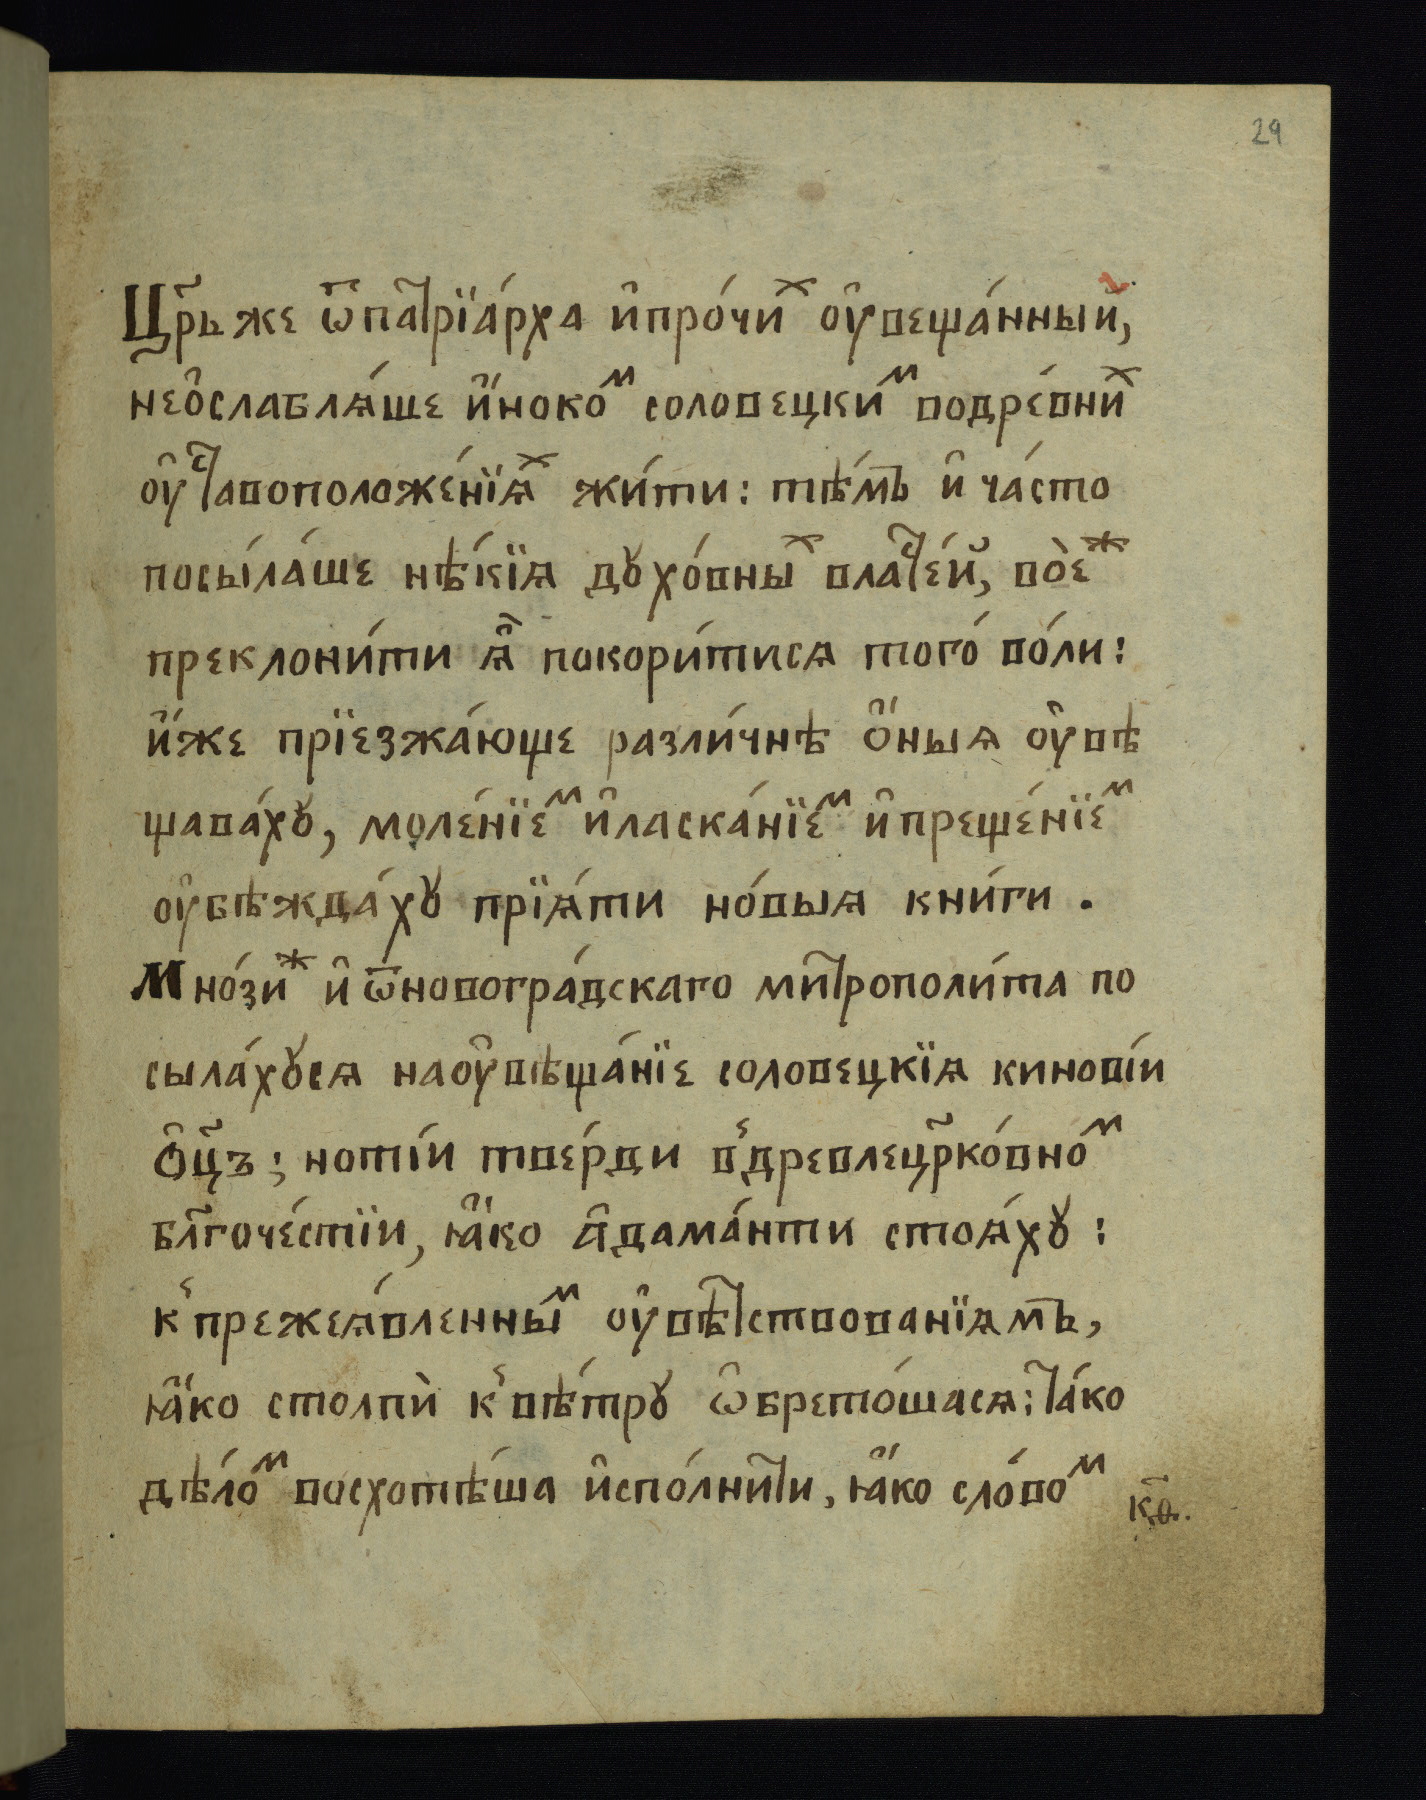 29
Цр҃ь же ѿпатрїа́рха и҆про́чиⷯ ᲂу҆веща́нный,
неѻ҆слаблѧ́ше и҆́нокоⷨ соловецкиⷨ водре́вниⷯ
ᲂу҆ставоположе́нїѧⷯ жи́ти: тѣ́мъ и҆ ча́сто
посыла́ше нѣ́кїѧ дꙋхо́вныⷯ властей, во̀еⷤ
преклони́ти ѧ҆̀ покори́тисѧ того́ во́ли:
и҆́же прїезжа́юще разли́чнѣ ѻ҆́ныѧ ᲂу҆вѣ
щава́хꙋ, моле́нїеⷨ и҆ласка́нїеⷨ и҆преще́нїеⷨ
ᲂу҆бѣжда́хꙋ прїѧ́ти но́выѧ кни́ги .
Мно́зиⷤ и҆ ѿновогра́дскаго митрополи́та по
сыла́хꙋсѧ наᲂу҆вѣща́нїе соловецкїѧ кинові́и
Ѻ҆ц҃ъ;ноті́и тве́рди в̾древлецр҃ко́вноⷨ
бл҃гоче́стїи, ꙗ҆́ко а҆дама́нти стоѧ́хꙋ:
к̾прежеѧ́вленныⷨ ᲂу҆вѣтствованїѧмъ,
ꙗ҆́ко столпѝ к̾вѣ́трꙋ ѡ҆брето́шасѧ; та́ко
дѣ́лоⷨ восхотѣ́ша и҆спо́лнити, ꙗ҆́ко сло́воⷨ
к҃ѳ.